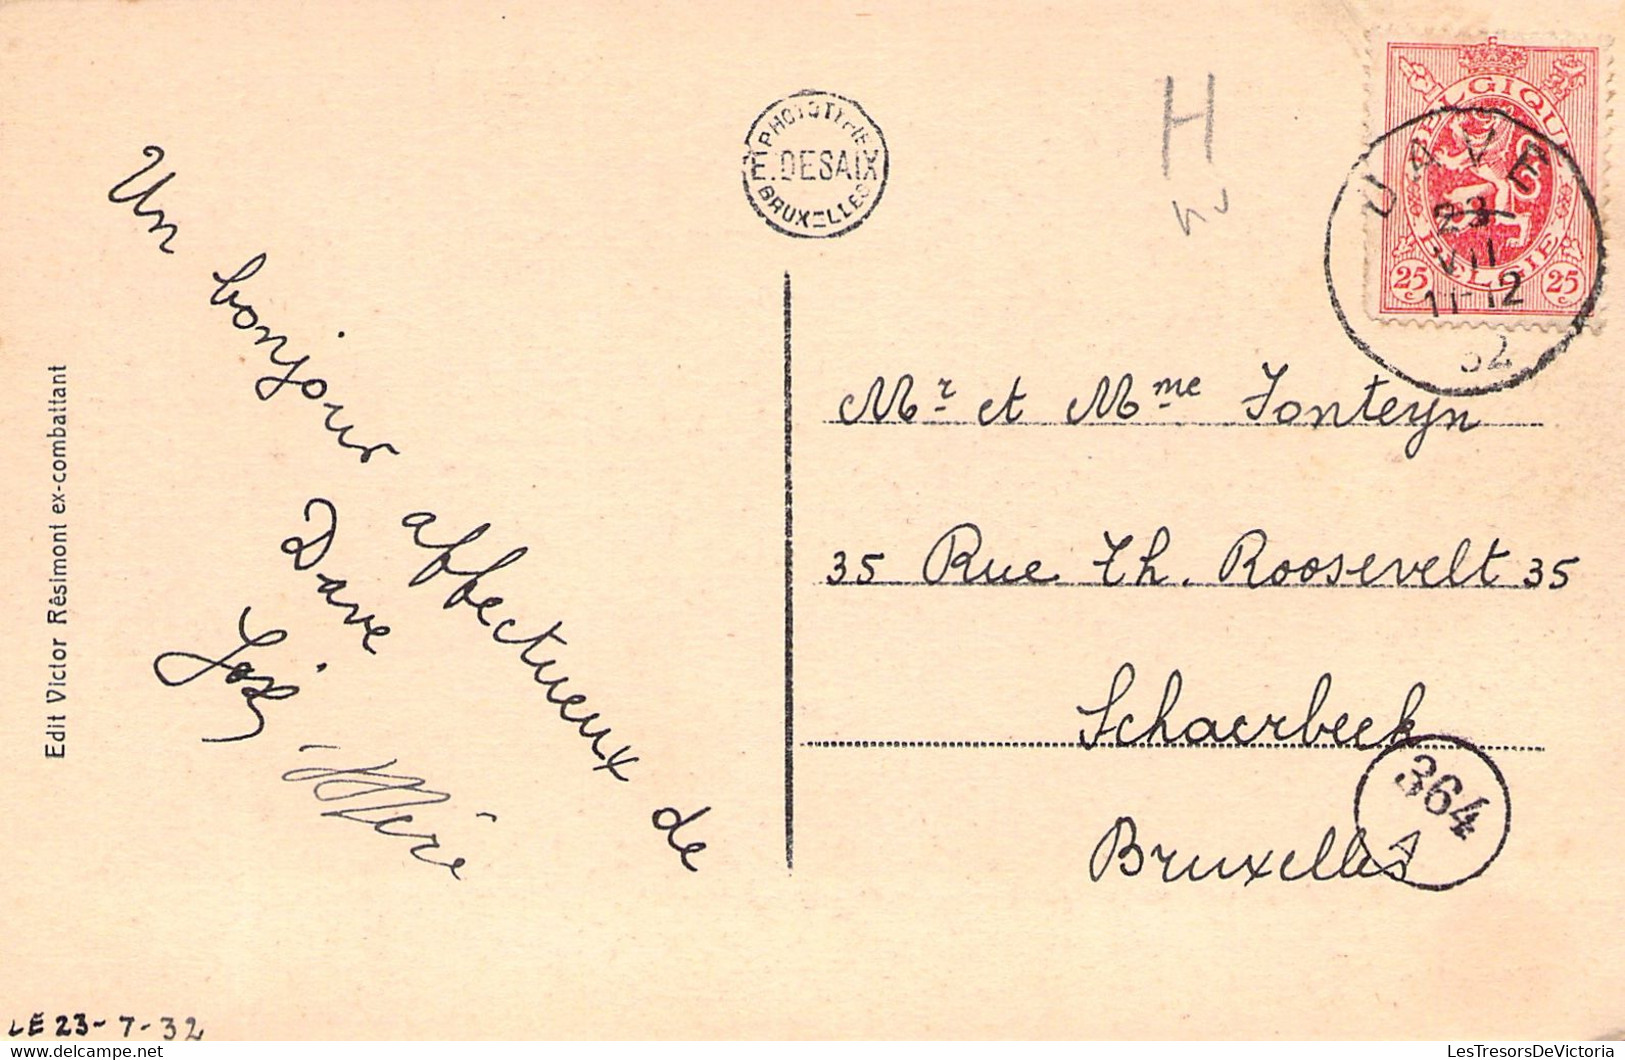 Un bonjour affectueux de
Dave
Edit Victor Résimont ex-combattant
LE 23-7-32
PHOTOTYPIE
E. DESAIX
BRUXELLES
H
BELGIQUE
BELGIE
25 c
25 c
DAVE
23
VII
11-12
32
Mr et Mme Fonteyn
35 Rue Th. Roosevelt 35
Schaerbeek
Bruxelles
364
A
LesTresorsDeVictoria